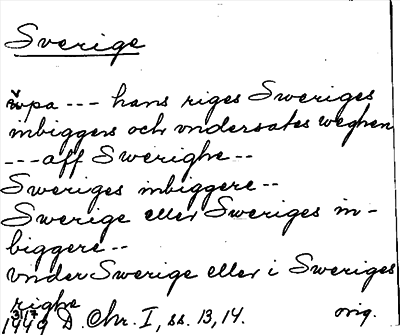 Sverige
wpa --- hans riges Sweriges
inbiggers och vndersates weghen
--- aff Swerighe --
Sweriges inbiggere --
Swerige eller Sweriges in-
biggere --
vnder Swerige eller i Sweriges
righe
31/7
1449 D. Chr. I, ss. 13, 14. orig.